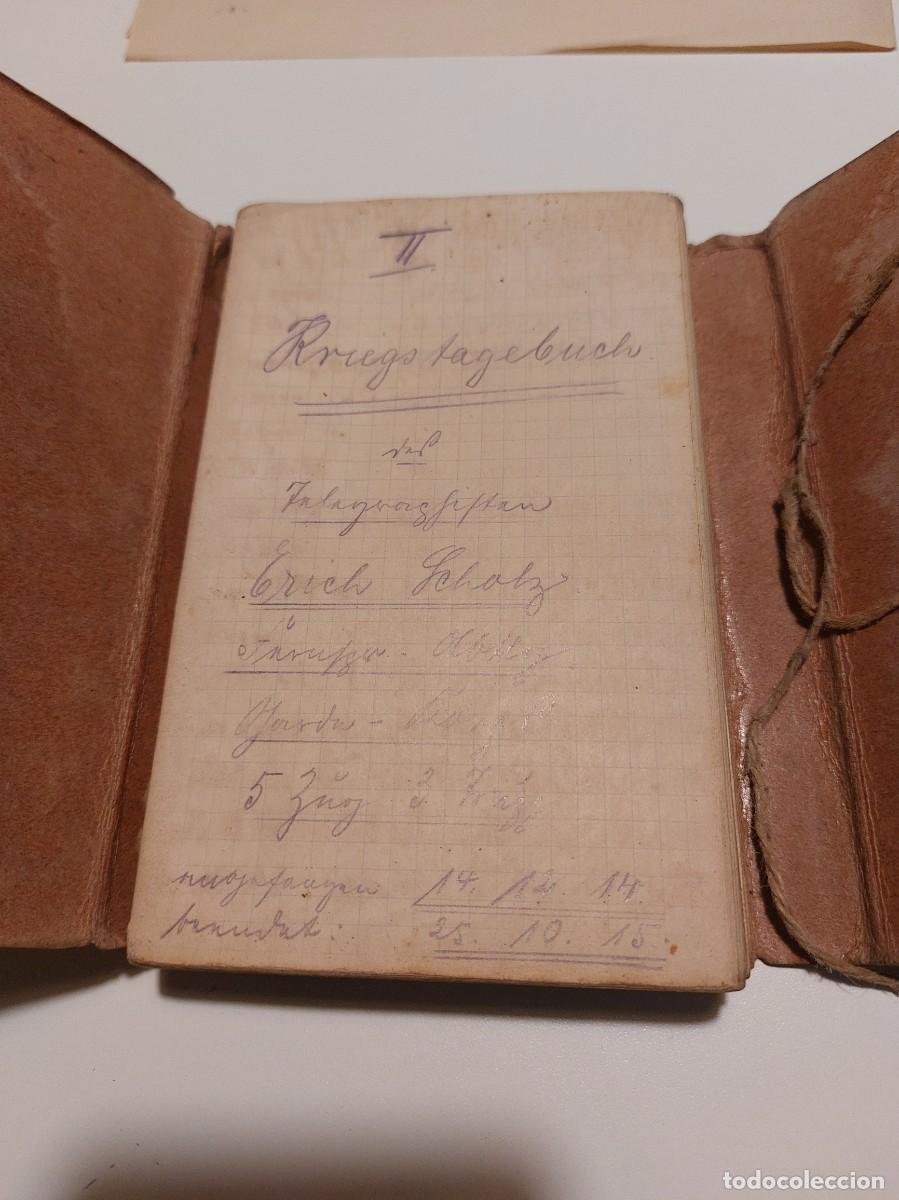 II
Kriegstagebuch
des
Telegraphisten
Erich Scholz
Fernspr. - Abtlg
Garde -
5 Zug 3
angefangen 14. 12. 14.
beendet: 25. 10. 15.
todocoleccion